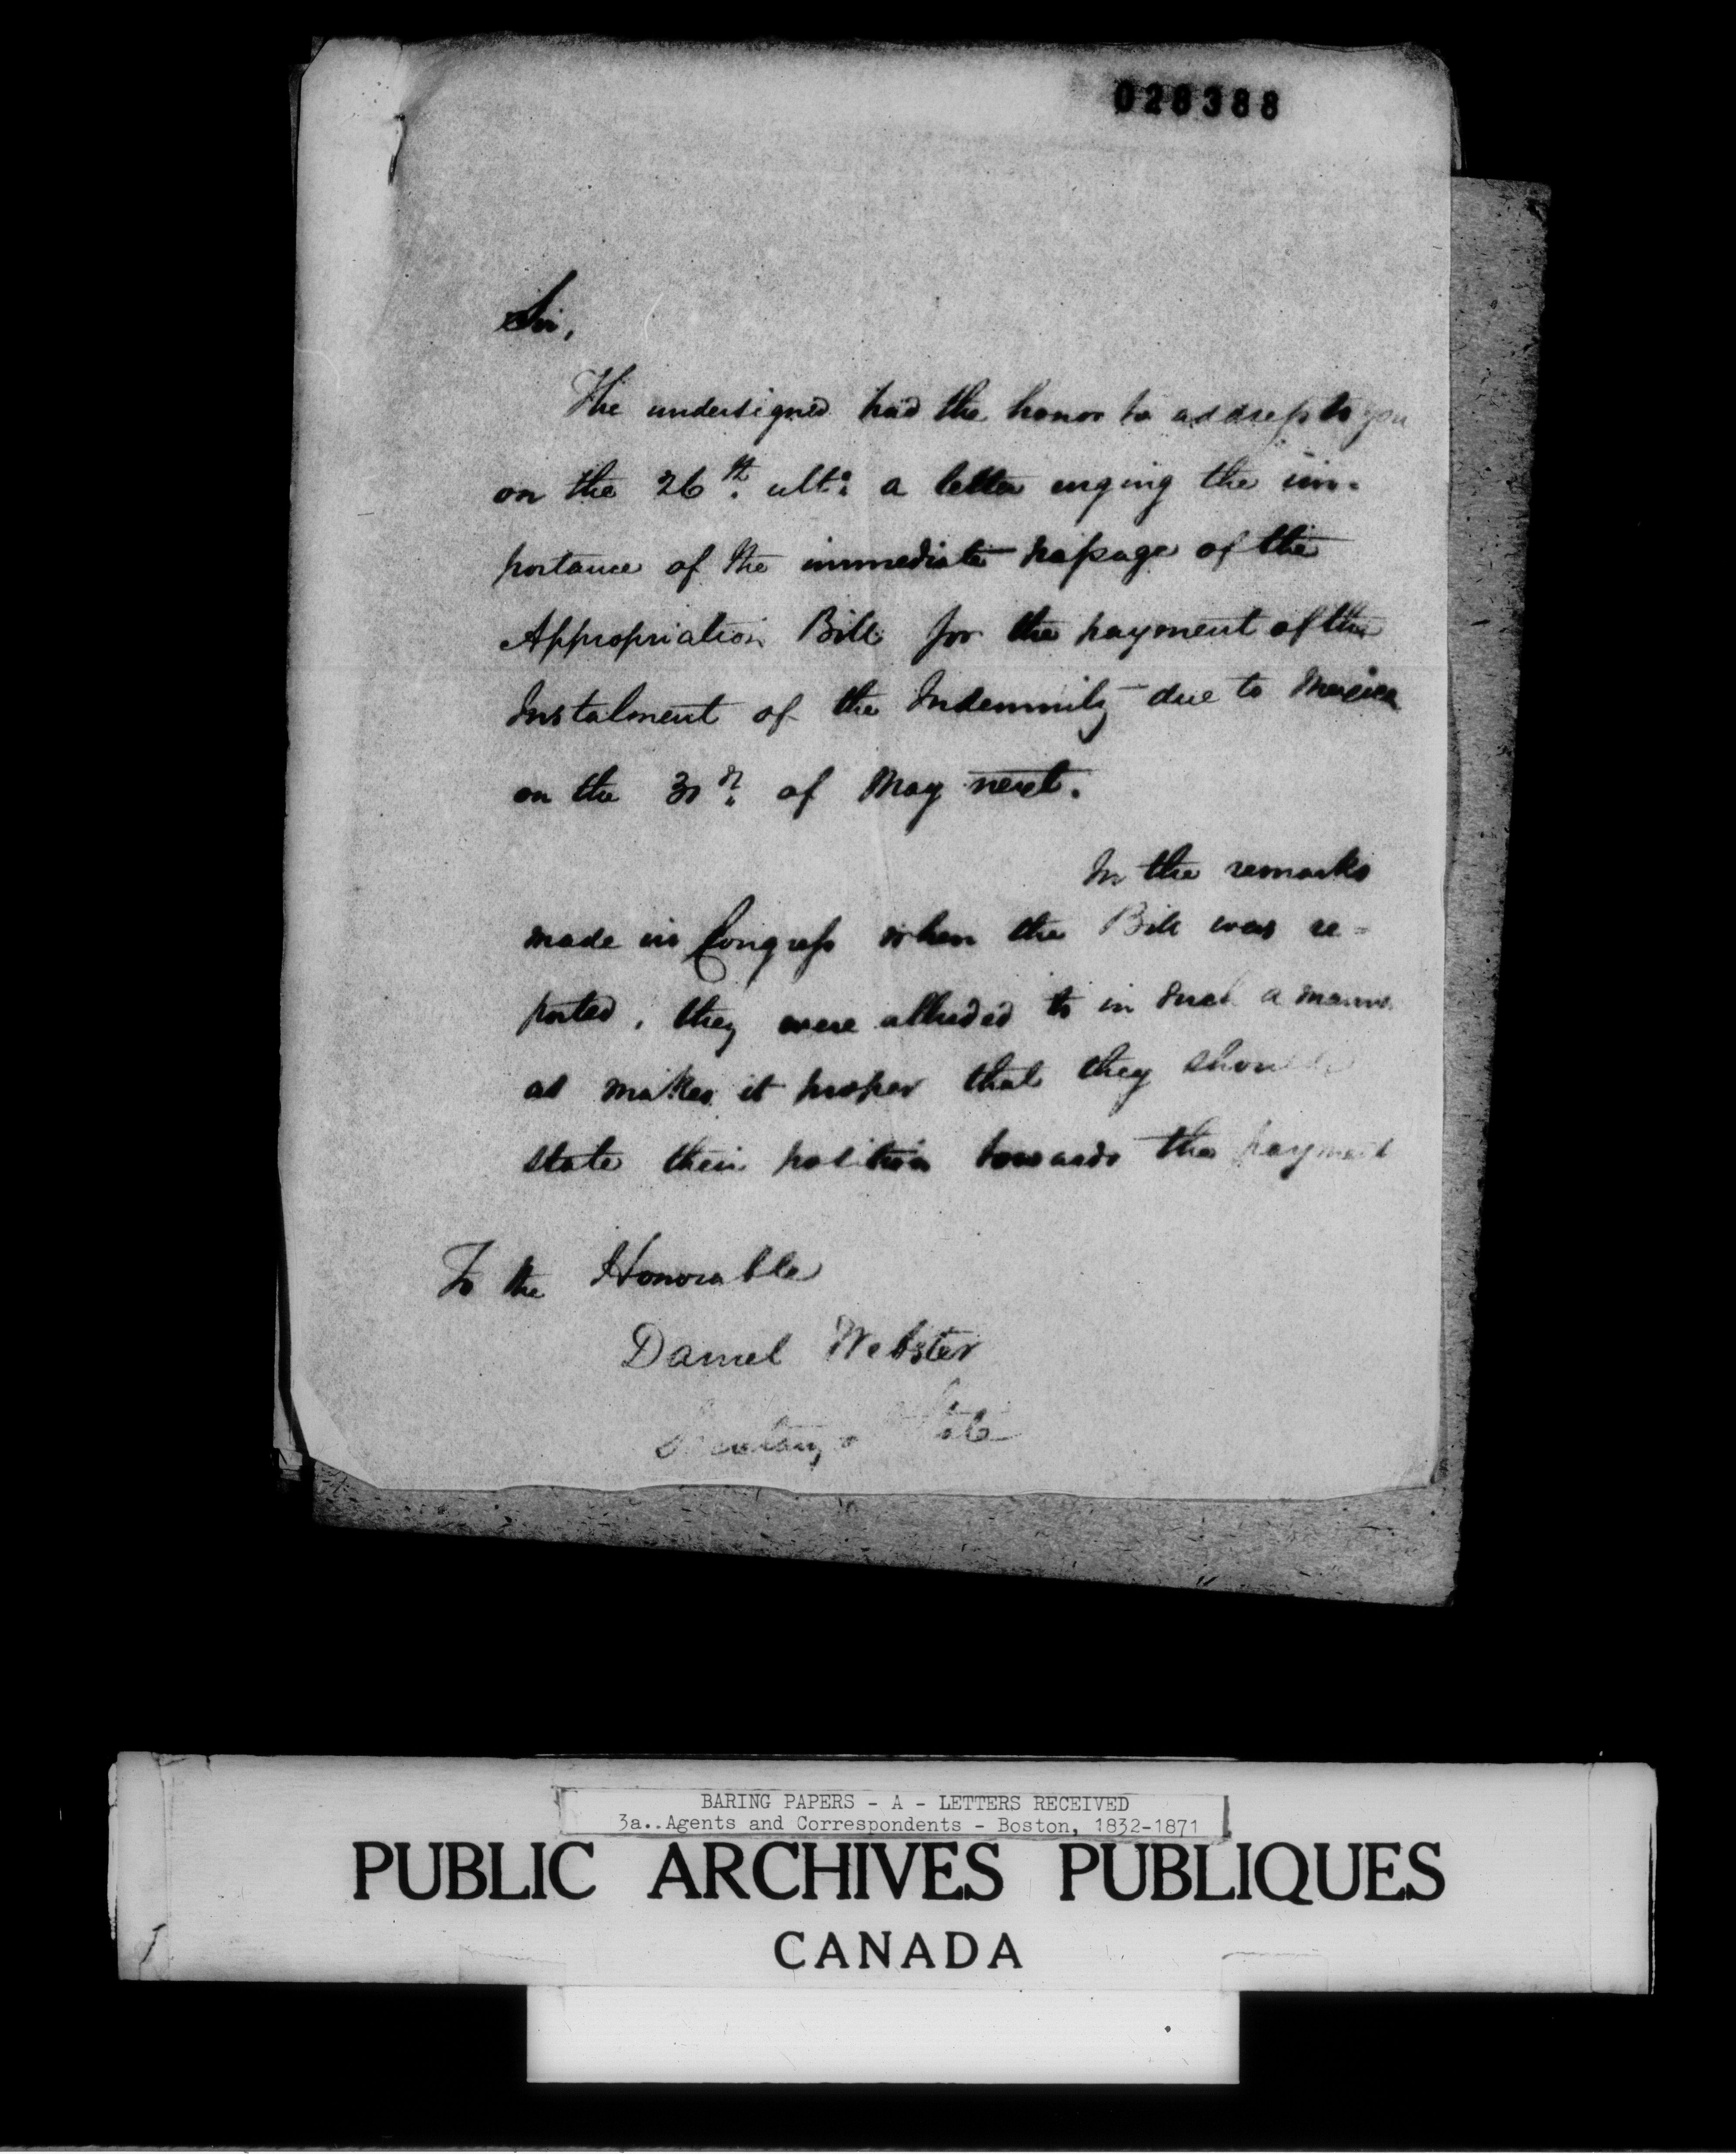 028388
Sir,
The undersigned had the honor to address to you
on the 26th. ulto: a letter urging the im-
portance of the immediate passage of the
Appropriation Bill for the payment of the
Instalment of the Indemnity due to Mexico
on the of May next.
In the remarks
made in Congress when the Bill was re-
ported, they were alluded to in such a manner
as makes it proper that they should
state their position towards the payment
To the Honorable
Daniel Webster
Secretary of State
BARING PAPERS - A - LETTERS RECEIVED
3a..Agents and Correspondents - Boston, 1832-1871
PUBLIC ARCHIVES PUBLIQUES
CANADA